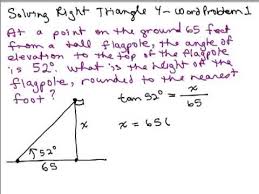 Solving Right Triangle 4 – Word Problem 1
At a point on the ground 65 feet
from a tall flagpole, the angle of
elevation to the top of the flagpole
is 52°. What is the height of the
flagpole, rounded to the nearest
foot?
tan 52° = x/65
x = 65(
x
52°
65